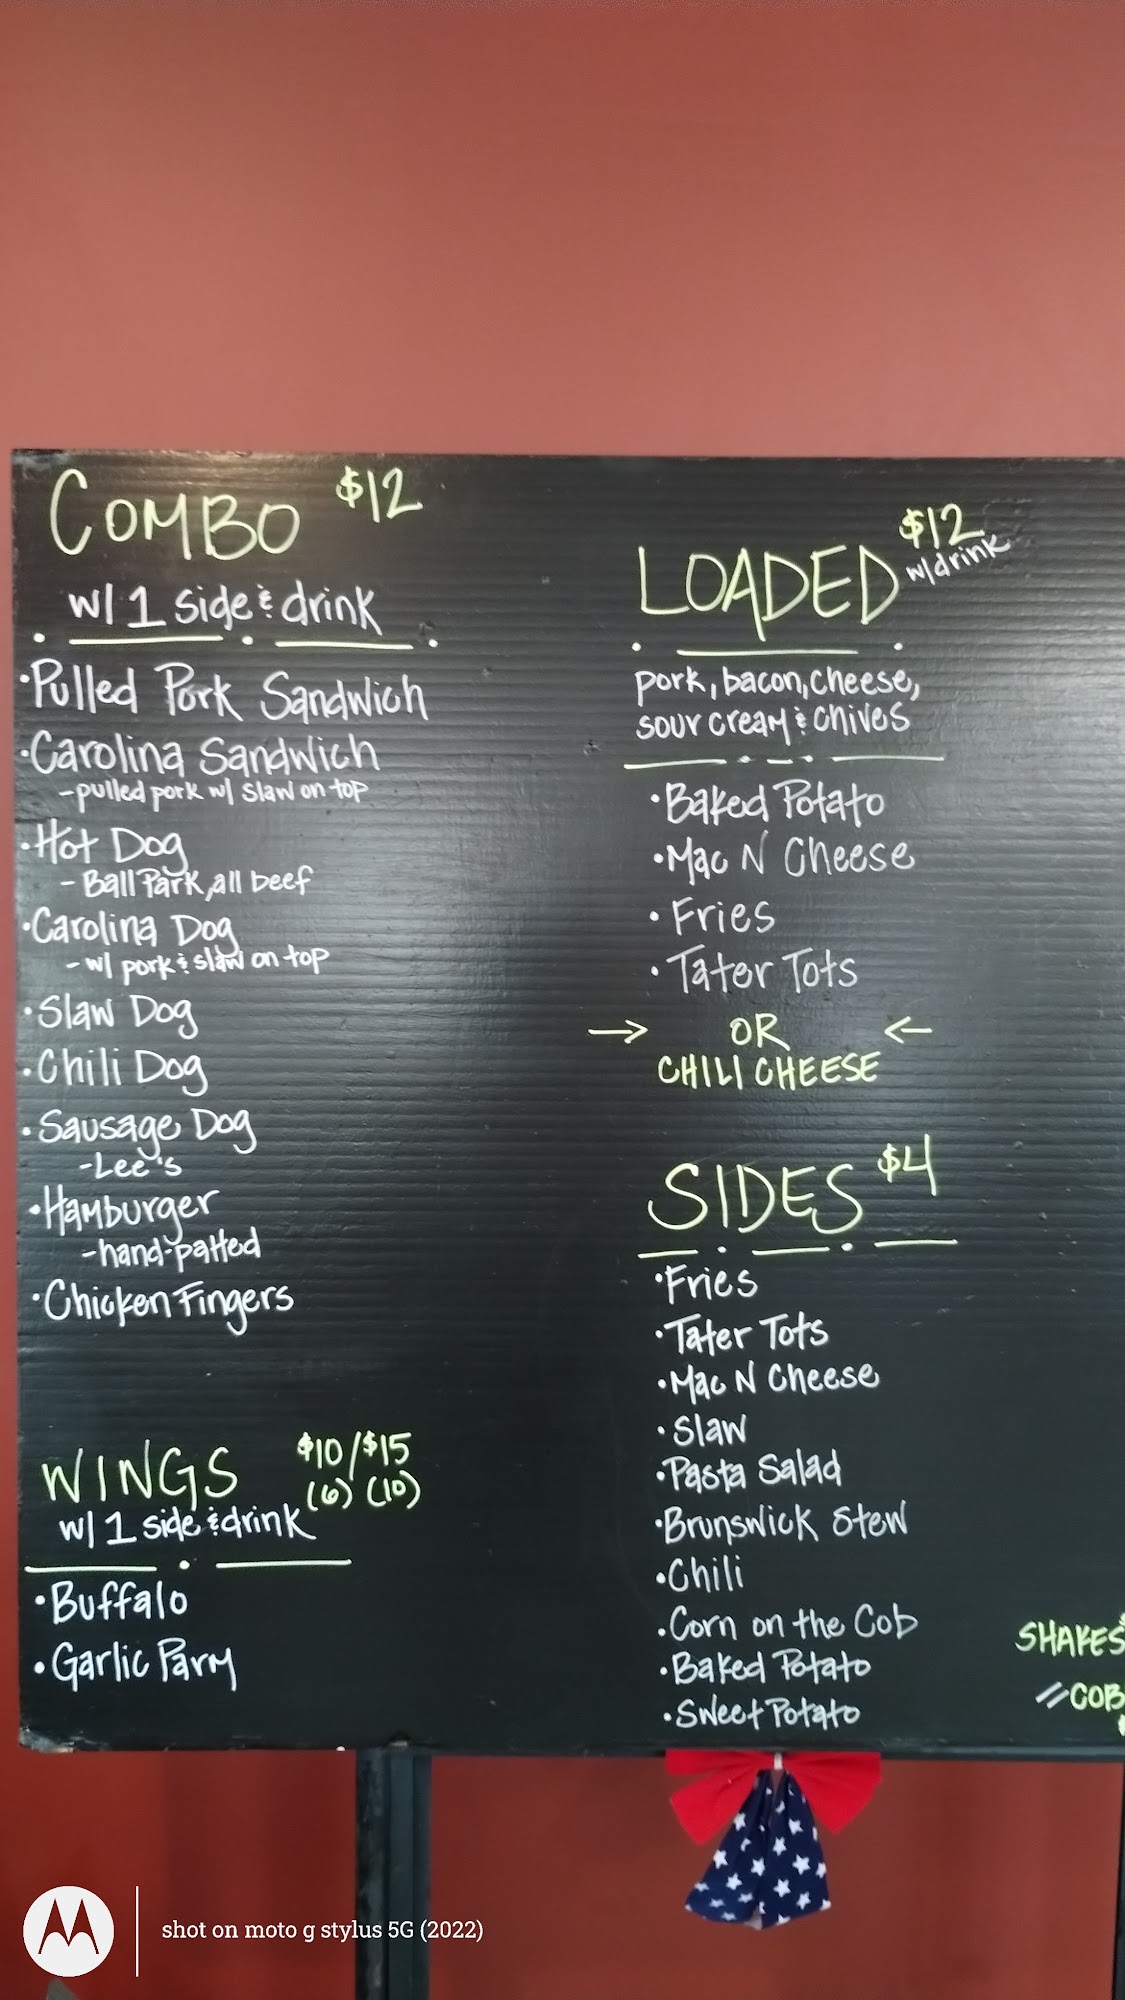 COMBO $12
w/ 1 side & drink
• Pulled Pork Sandwich
• Carolina Sandwich
- pulled pork w/ slaw on top
• Hot Dog
- Ball Park, all beef
• Carolina Dog
- w/ pork & slaw on top
• Slaw Dog
• Chili Dog
• Sausage Dog
- Lee's
• Hamburger
- hand-patted
• Chicken Fingers
WINGS $10/$15
(6) (10)
w/ 1 side & drink
• Buffalo
• Garlic Parm
LOADED $12
w/drink
pork, bacon, cheese,
sour cream & chives
• Baked Potato
• Mac N Cheese
• Fries
• Tater Tots
→ OR ←
CHILI CHEESE
SIDES $4
• Fries
• Tater Tots
• Mac N Cheese
• Slaw
• Pasta Salad
• Brunswick Stew
• Chili
• Corn on the Cob
• Baked Potato
• Sweet Potato
SHAKES
COB
shot on moto g stylus 5G (2022)